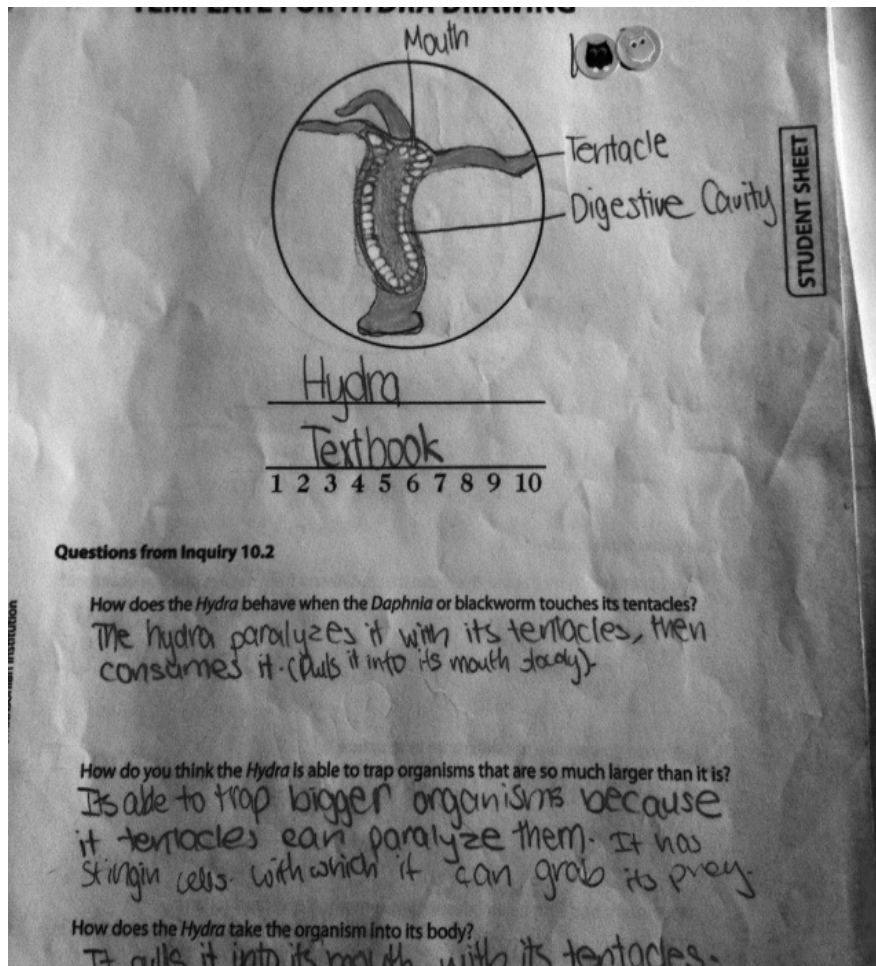 TEMPLATE FOR HYDRA DRAWING
Mouth
Tentacle
Digestive Cavity
STUDENT SHEET
Hydra
Textbook
1 2 3 4 5 6 7 8 9 10
Questions from Inquiry 10.2
How does the Hydra behave when the Daphnia or blackworm touches its tentacles?
The hydra paralyzes it with its tentacles, then
consumes it. (Pulls it into its mouth slowly).
How do you think the Hydra is able to trap organisms that are so much larger than it is?
Its able to trap bigger organisms because
it tentacles can paralyze them. It has
Stingin cells with which it can grab its prey.
How does the Hydra take the organism into its body?
It pulls it into its mouth with its tentacles.